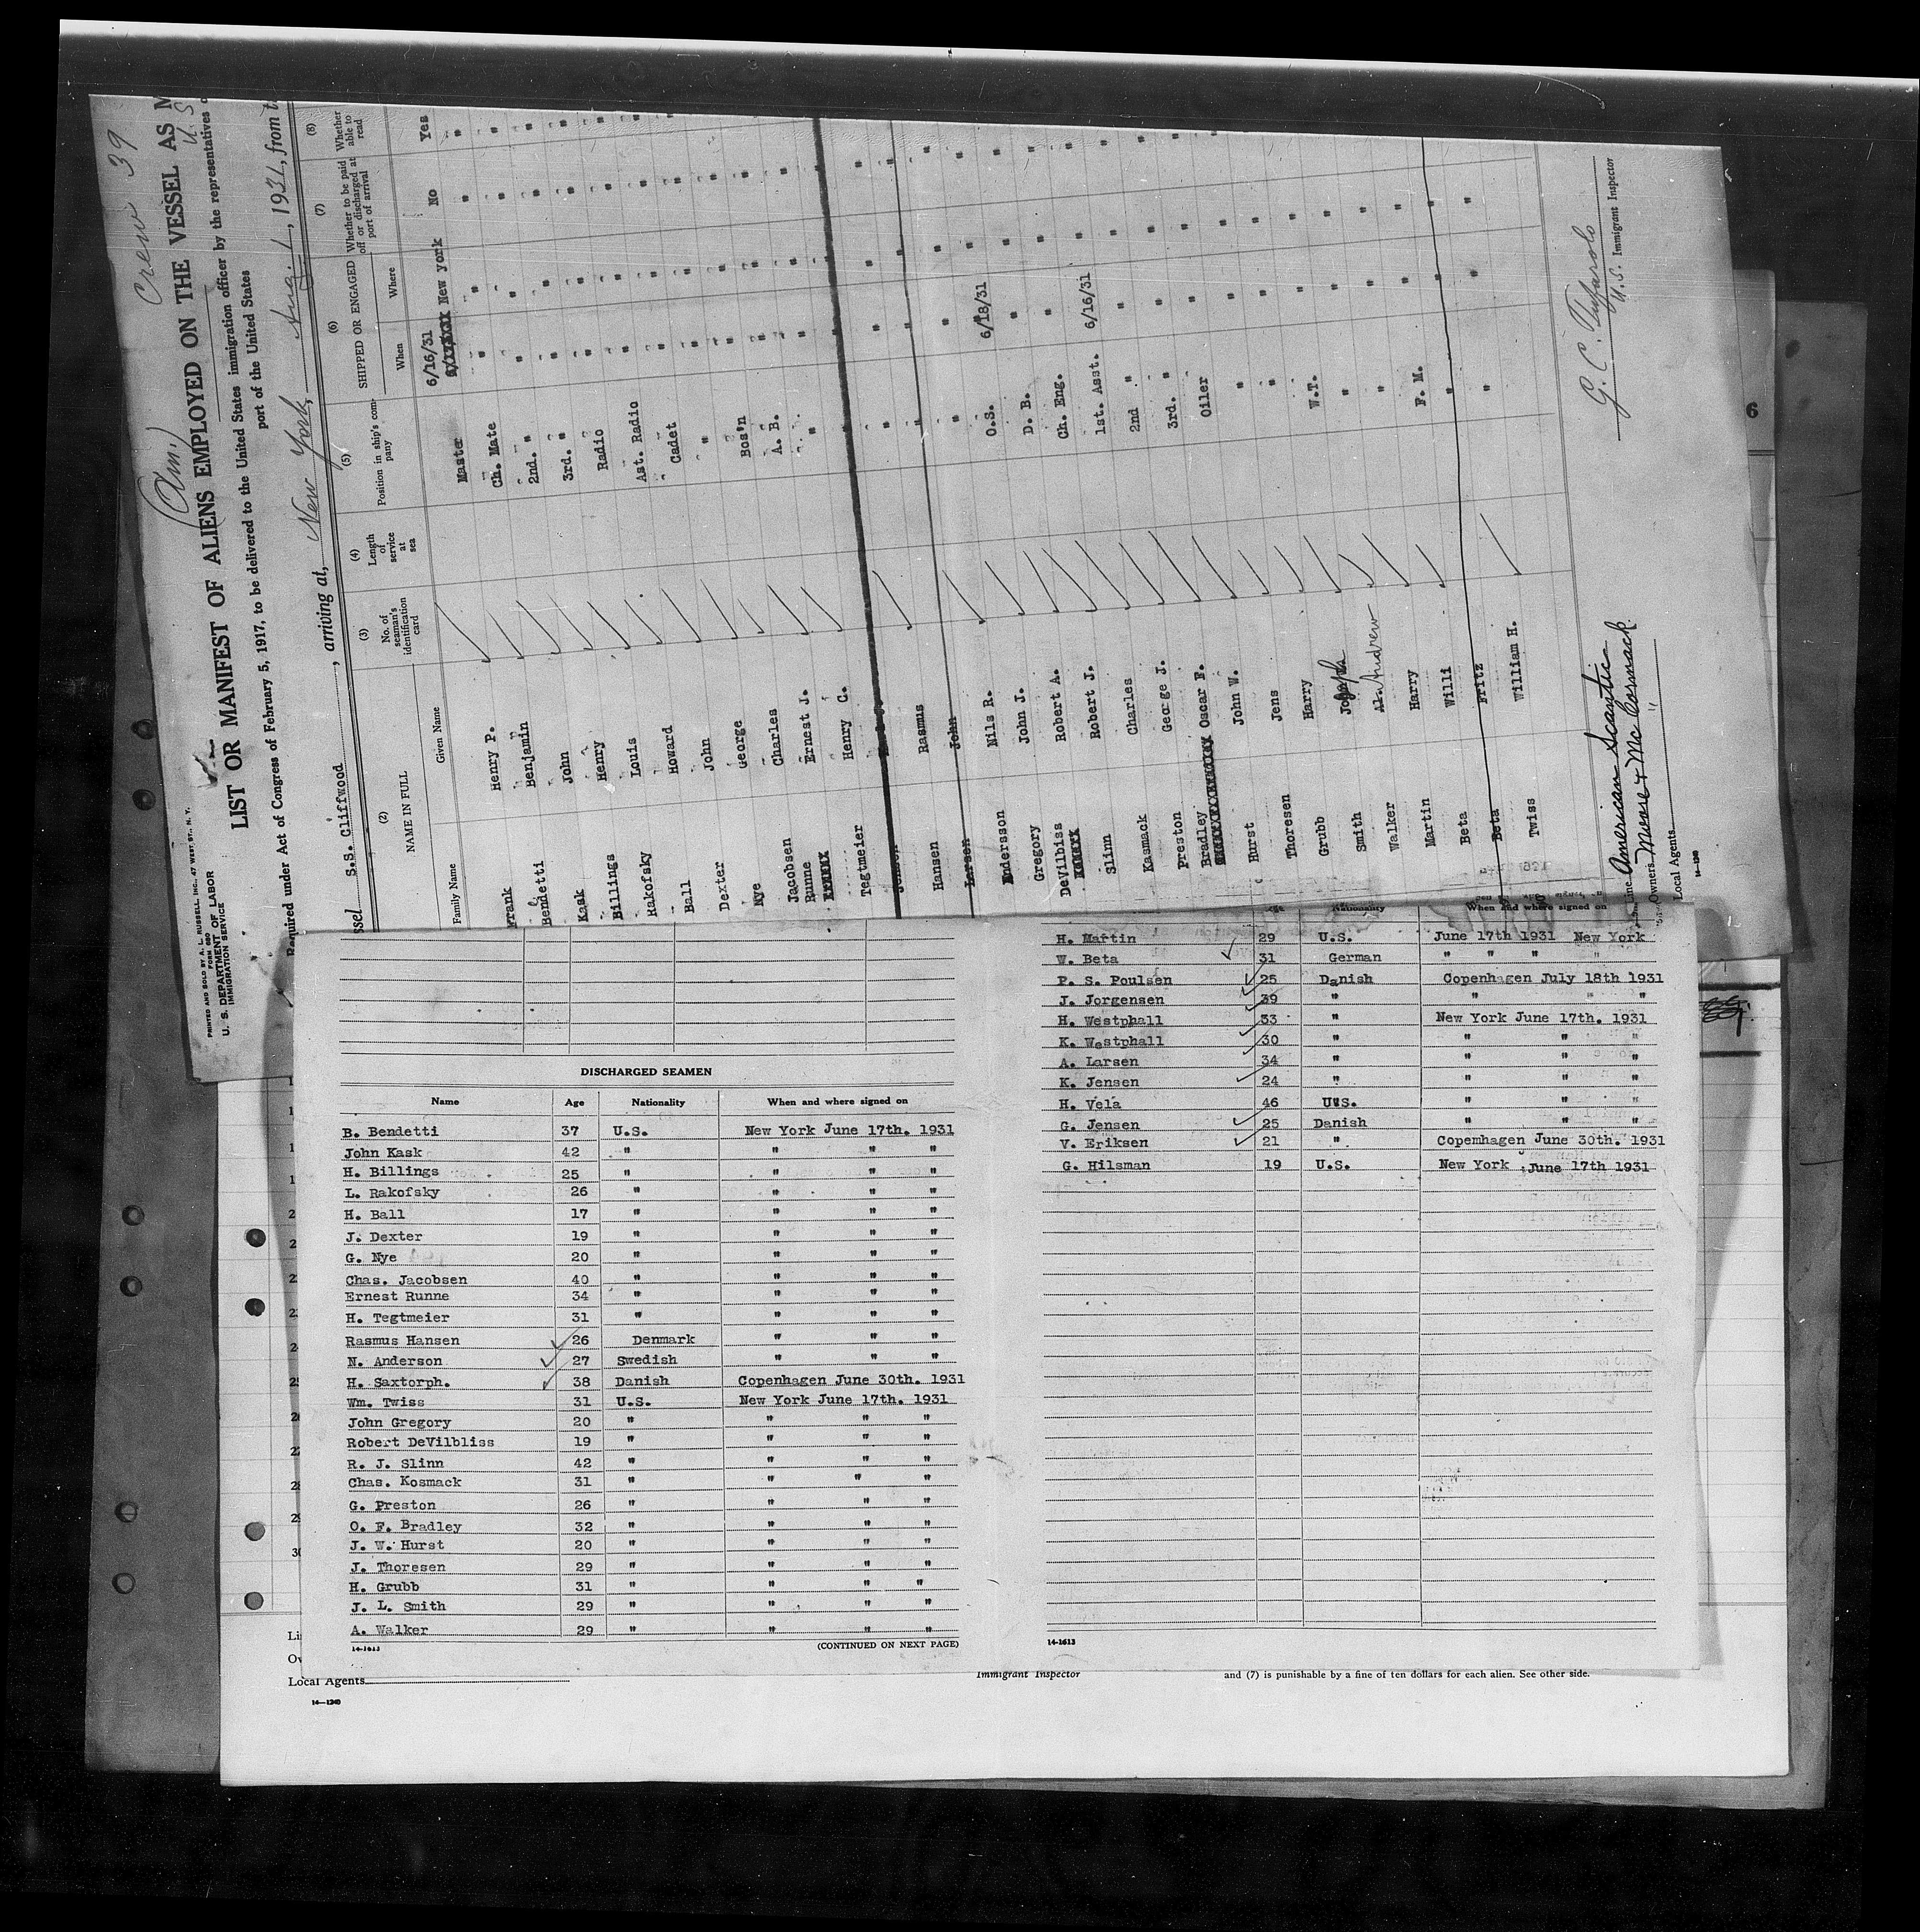 Crew 39
(Am.)
PRINTED AND SOLD BY A. L. RUSSELL, INC., 47 WEST ST., N. Y.
FORM 680
U. S. DEPARTMENT OF LABOR
IMMIGRATION SERVICE
LIST OR MANIFEST OF ALIENS EMPLOYED ON THE VESSEL AS M
U. S.
Required under Act of Congress of February 5, 1917, to be delivered to the United States immigration officer by the representatives
port of the United States
ssel S.S. Cliffwood, arriving at, New York, Aug. 1, 1931, from t
(2) (3) (4) (5) (6) (7) (8)
NAME IN FULL
Family Name Given Name
No. of seaman's identification card
Length of service at sea
Position in ship's company
SHIPPED OR ENGAGED
When Where
Whether to be paid off or discharged at port of arrival
Whether able to read
Frank Henry P. Master 6/16/31 New york No Yes
Bendetti Benjamin Ch. Mate " " " "
Kask John 2nd. " " " " "
Billings Henry 3rd. " " " " "
Rakofsky Louis Radio " " " "
Ball Howard Ast. Radio " " " "
Dexter John Cadet " " " "
Nye George " " " " "
Jacobsen Charles Bos'n " " " "
Runne Ernest J. A. B. " " " "
Tegtmeier Henry C. " " " " "
Hansen Rasmus " " " " "
Larsen John " " " " "
Andersson Nils R. " " " " "
Gregory John J. O.S. 6/18/31 " " "
DeVilbiss Robert A. D. B. " " " "
Slinn Robert J. Ch. Eng. " " " "
Kasmack Charles 1st. Asst. 6/16/31 " " "
Preston George J. 2nd " " " " "
Bradley Oscar F. 3rd. " " " " "
Hurst John W. Oiler " " "
Thoresen Jens " " " "
Grubb Harry " " " "
Smith Joseph W.T. " " "
Walker Andrew " " " "
Martin Harry " " " "
Beta Willi F. M. " " "
Beta Fritz " " " "
Twiss William H. " " "
Line American Scantic
Owners Moore & McCormack
Local Agents "
14-1240
U.S. Immigrant Inspector
6
DISCHARGED SEAMEN
Name Age Nationality When and where signed on
B. Bendetti 37 U.S. New York June 17th. 1931
John Kask 42 " " " "
H. Billings 25 " " " "
L. Rakofsky 26 " " " "
H. Ball 17 " " " "
J. Dexter 19 " " " "
G. Nye 20 " " " "
Chas. Jacobsen 40 " " " "
Ernest Runne 34 " " " "
H. Tegtmeier 31 " " " "
Rasmus Hansen 26 Denmark " " "
N. Anderson 27 Swedish " " "
H. Saxtorph. 38 Danish Copenhagen June 30th. 1931
Wm. Twiss 31 U.S. New York June 17th. 1931
John Gregory 20 " " " "
Robert DeVilbliss 19 " " " "
R. J. Slinn 42 " " " "
Chas. Kosmack 31 " " " "
G. Preston 26 " " " "
O. F. Bradley 32 " " " "
J. W. Hurst 20 " " " "
J. Thoresen 29 " " " "
H. Grubb 31 " " " "
J. L. Smith 29 " " " "
A. Walker 29 " " " "
14-1613
(CONTINUED ON NEXT PAGE)
Nationality When and where signed on
H. Martin 29 U.S. June 17th 1931 New York
W. Beta 31 German " " " "
P. S. Poulsen 25 Danish Copenhagen July 18th 1931
J. Jorgensen 39 " " " "
H. Westphall 33 " New York June 17th. 1931
K. Westphall 30 " " " "
A. Larsen 34 " " " "
K. Jensen 24 " " " "
H. Vela 46 U.S. " " "
G. Jensen 25 Danish " " "
V. Eriksen 21 " Copenhagen June 30th. 1931
G. Hilsman 19 U.S. New York June 17th 1931
14-1613
Local Agents
14-1240
Immigrant Inspector
and (7) is punishable by a fine of ten dollars for each alien. See other side.